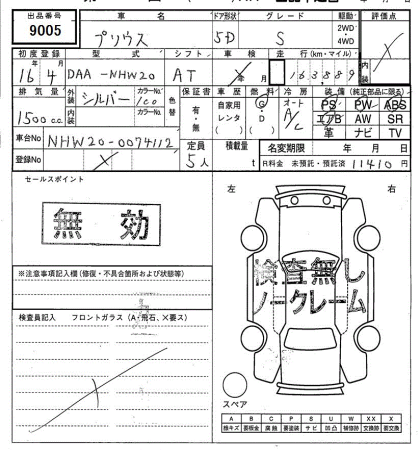 出品番号 車名 ドア形状 グレード 駆動 評価点
9005 プリウス 5D S 2WD・4WD
初度登録 型式 シフト 車検 走行(km・マイル)
16年4月 DAA-NHW20 AT 年 月 163889
排気量 外装 カラーNo. 色替 保証書 車歴 燃料 冷房 装備(純正部品に限る)
1500cc シルバー 1C0 有・無 自家用 レンタ G・D オートA/C PS PW ABS
内装 カラーNo. エアB AW SR
革 ナビ TV
車台No NHW20-0074112 定員 積載量 名変期限 年 月 日
登録No 5人 t R料金 未預託・預託済 11410円
セールスポイント
無効
左 右
※注意事項記入欄(修復・不具合箇所および状態等)
検査無し
ノークレーム
検査員記入 フロントガラス(A・飛石、×要ス)
スペア
A B C P S U W XX X
線キズ 要板金 腐蝕 要塗装 サビ 凹凸 補修跡 交換跡 要交換